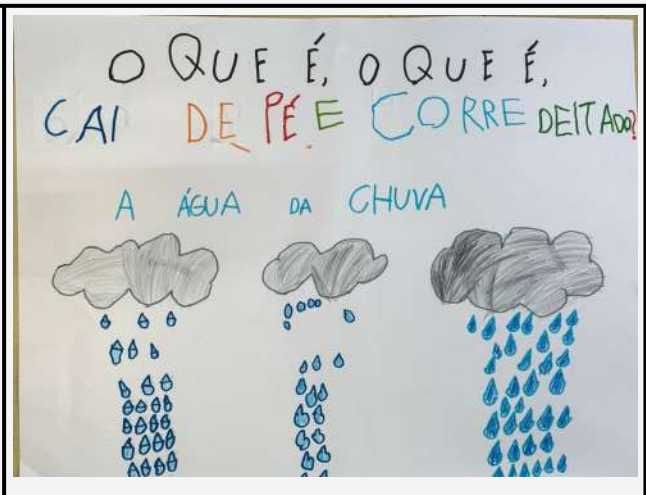 O QUE É, O QUE É,
CAI DE PÉ E CORRE DEITADO?
A ÁGUA DA CHUVA